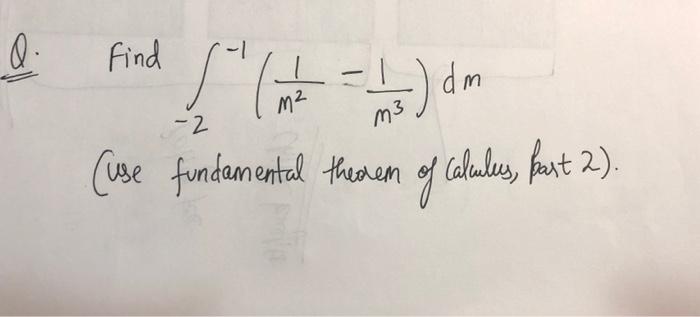 Q. Find ∫_{-2}^{-1} (1/m² - 1/m³) dm
(use fundamental theorem of Calculus, part 2).